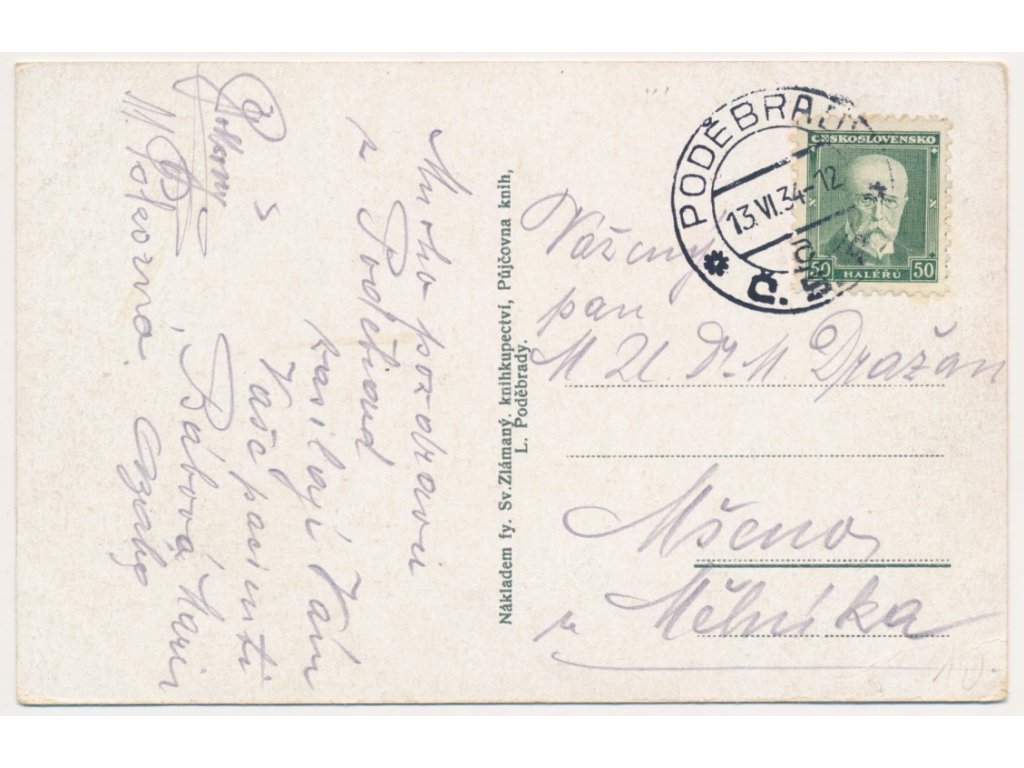 Mnoho pozdravů
z Poděbrad
zasílají Vám
Vaši pacienti
Bábová Marie
M
PODĚBRADY
13.VI.34-12
* Č.
ČESKOSLOVENSKO
50 HALÉŘŮ 50
Nákladem fy. Sv. Zlámaný, knihkupectví, Půjčovna knih,
L. Poděbrady.
Vážený
pan
M U Dr M. Dražan
Mšeno
u Mělníka